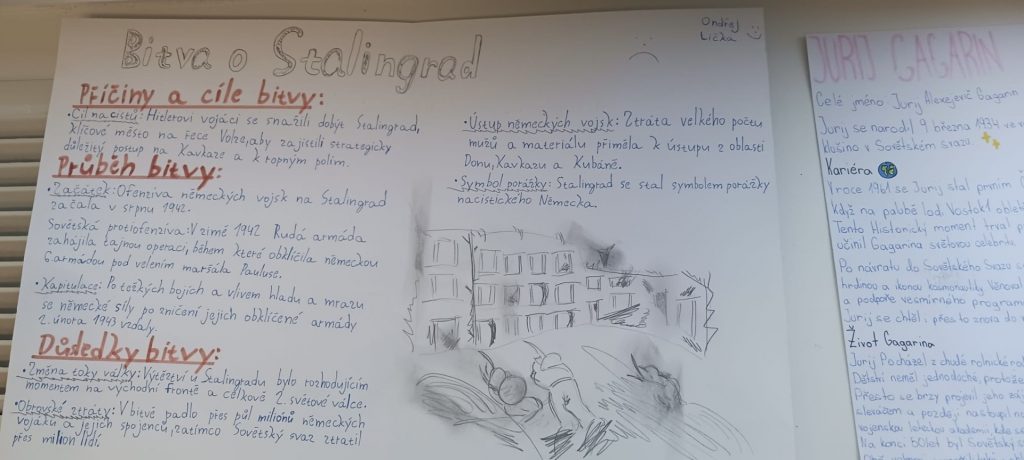 Bitva o Stalingrad
Ondřej
Lička
Příčiny a cíle bitvy:
•Cíl nacistů: Hitlerovi vojáci se snažili dobýt Stalingrad,
klíčové město na řece Volze, aby zajistili strategicky
důležitý postup na Kavkaze a k ropným polím.
Průběh bitvy:
•Začátek: Ofenziva německých vojsk na Stalingrad
začala v srpnu 1942.
Sovětská protiofenziva: V zimě 1942 Rudá armáda
zahájila tajnou operaci, během které obklíčila německou
6 armádou pod velením maršála Pauluse.
•Kapitulace: Po těžkých bojích a vlivem hladu a mrazu
se německé síly po zničení jejich obklíčené armády
2. února 1943 vzdaly.
Důsledky bitvy:
•Změna toky války: Vítězství u Stalingradu bylo rozhodujícím
momentem na východní frontě a celkově 2. světové válce.
•Obrovské ztráty: V bitvě padlo přes půl milionů německých
vojáků a jejich spojenců, zatímco Sovětský svaz ztratil
přes milion lidí.
•Ústup německých vojsk: Ztráta velkého počtu
mužů a materiálu přiměla k ústupu z oblasti
Donu, Kavkazu a Kubáně.
•Symbol porážky: Stalingrad se stal symbolem porážky
nacistického Německa.
JURIJ GAGARIN
Celé jméno Jurij Alexejevič Gagarin
Jurij se narodil 9 března 1934 ve
klušino v Sovětském svazu.
Kariéra
V roce 1961 se Jurij stal prvním
Když na palubě lod. Vostok1
Tento Historický moment trval
učinil Gagarina světovou celebritu
Po návratu do Sovětského Svazu
hrdinou a ikonou kosmonautiky. Věnoval
a podpoře vesmírného programu
Jurij se chtěl, přes to znora do
Život Gagarina
Jurij Pocházel z chudé rolnické
Dětství neměl jednoduché, protože
Přesto se brzy projevil jeho
slevačem a později nastoupil na
vojenskou leteckou akademii, kde se
Na konci 50let byl Sovětský